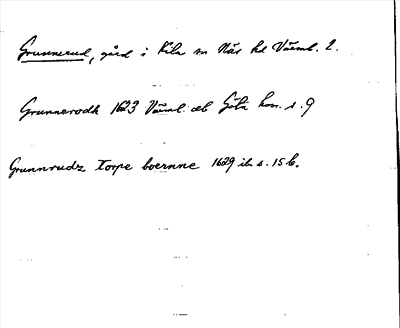 Grunnerud, gård i Kila sn Näs hd Värml. l.
Grunnerodh 1623 Värml. älb Göta kon. s. 9
Grunnrudz torpe boernne 1629 ib s. 15 b.